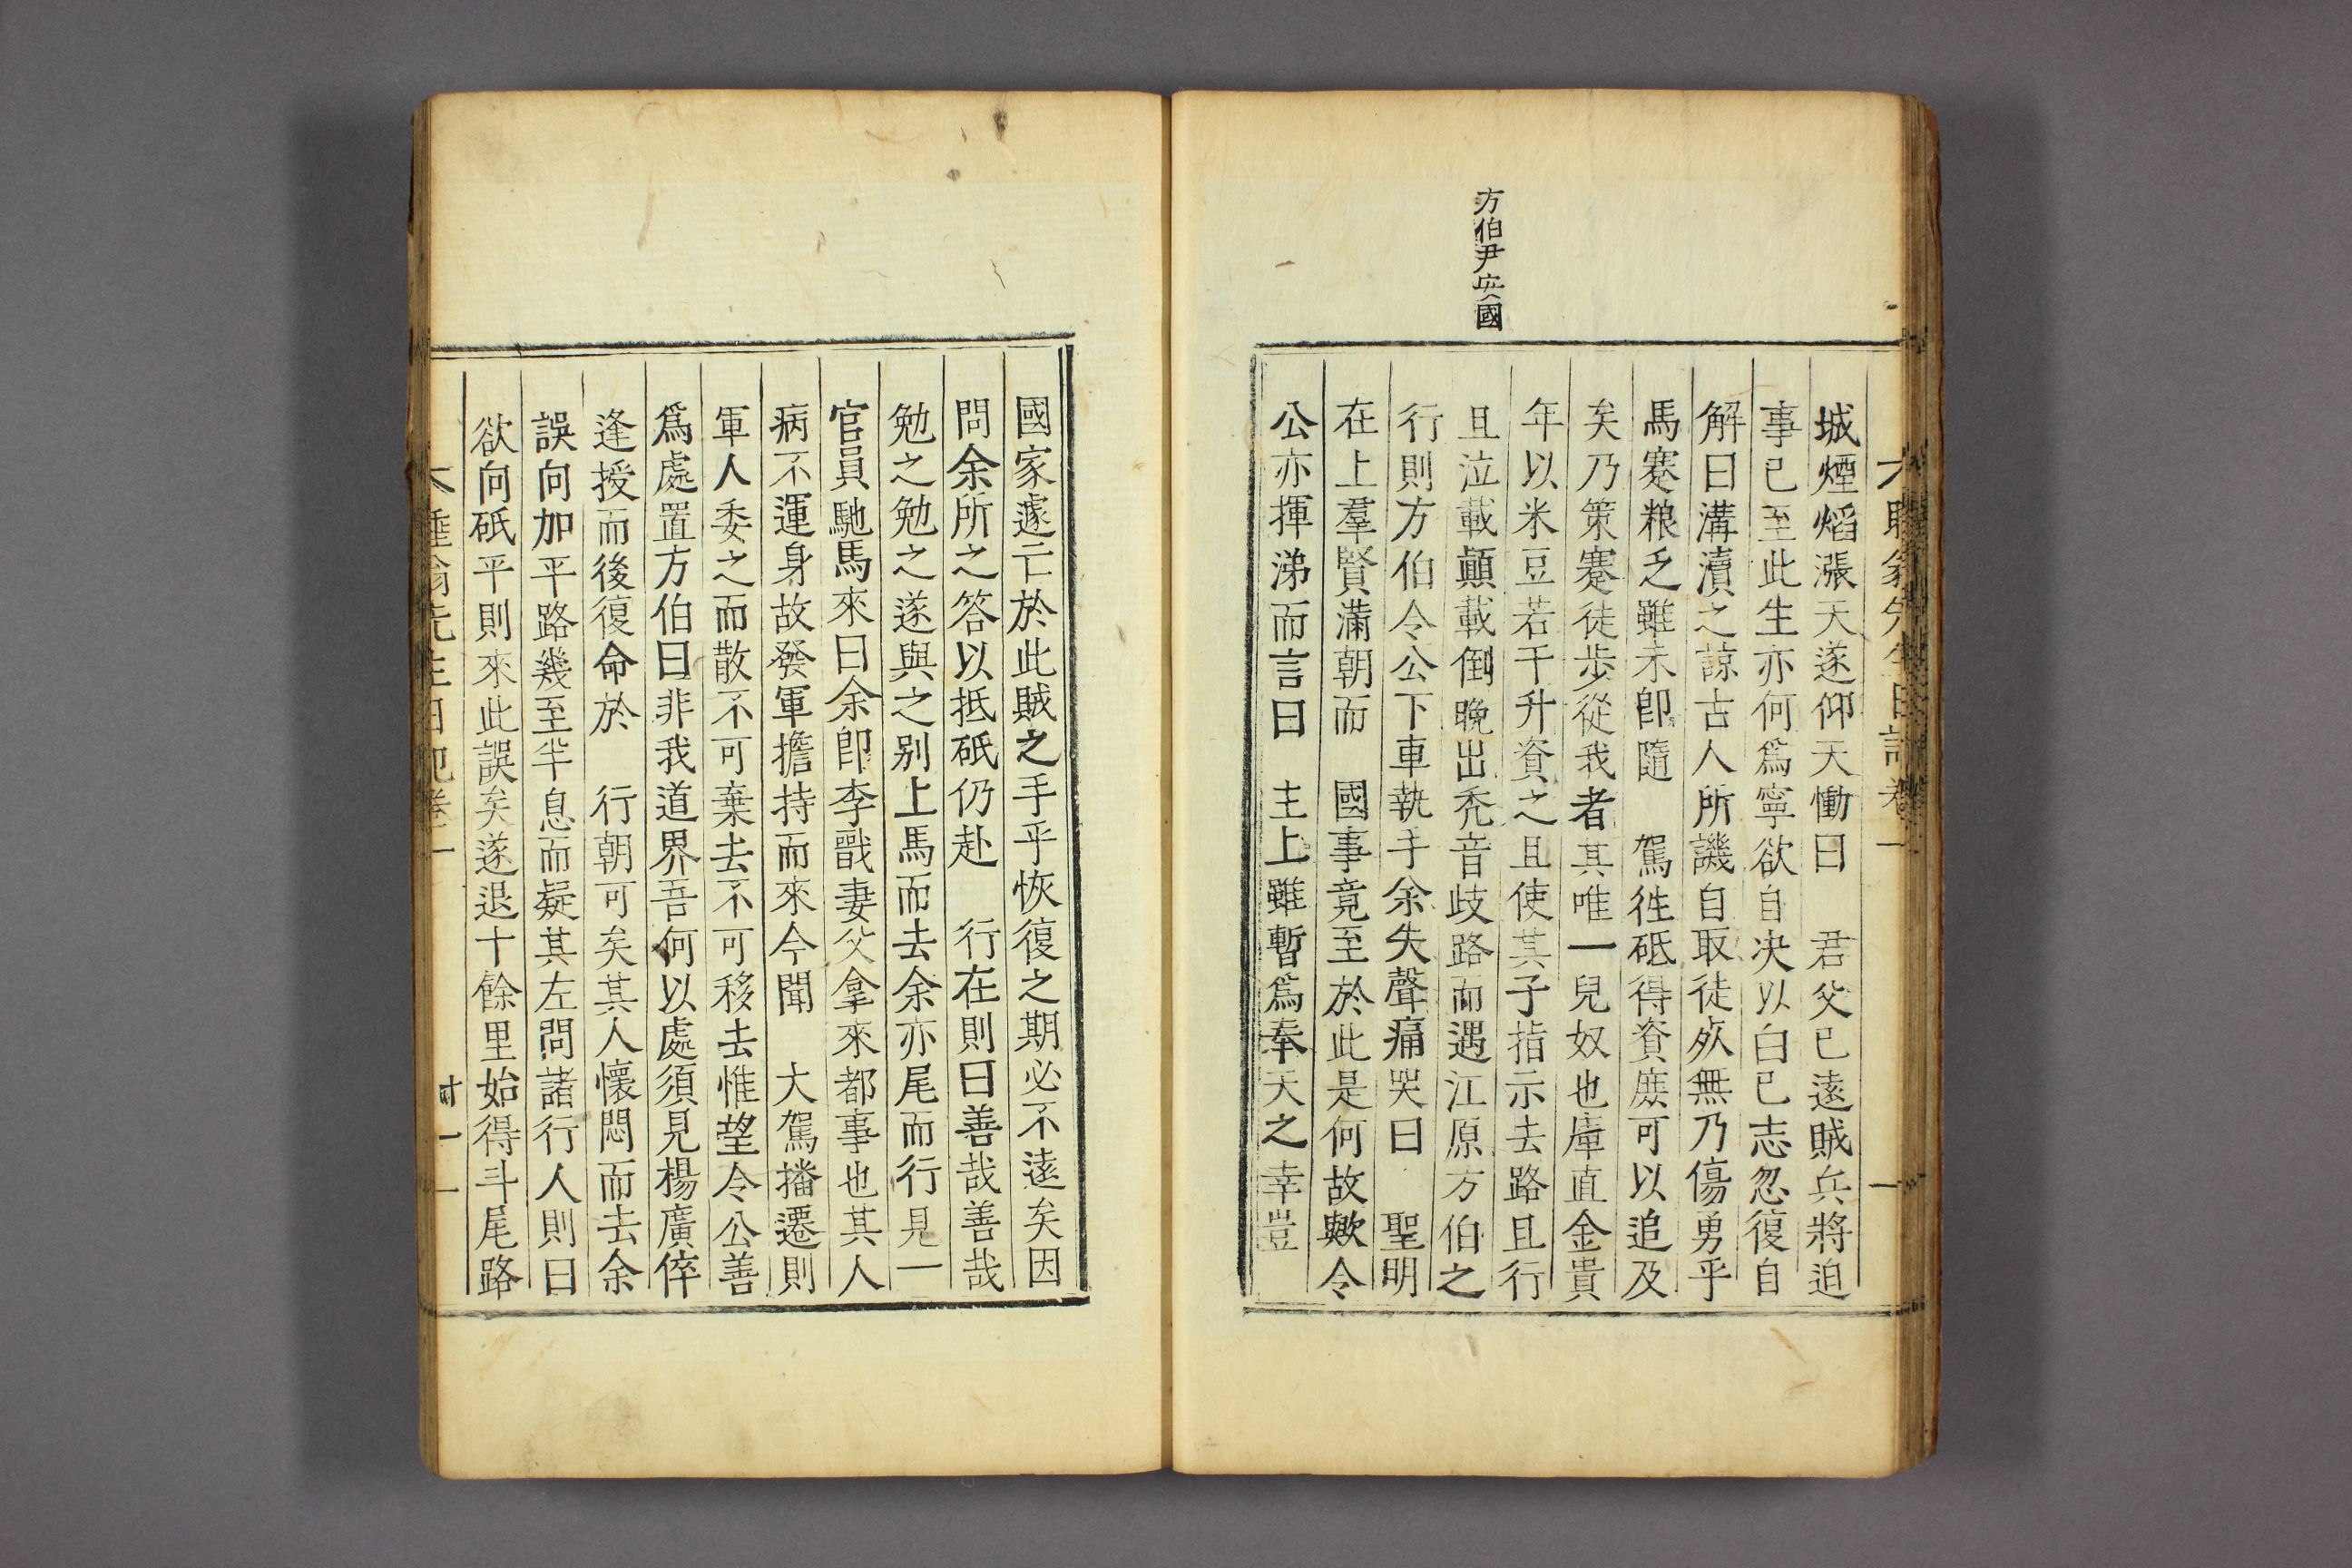 方伯尹安國
城煙熖漲天遂仰天慟曰 君父已遠賊兵將迫
事已至此生亦何爲寧欲自决以白已志忽復自
解曰溝瀆之諒古人所譏自取徒死無乃傷勇乎
馬蹇粮乏雖未卽隨 駕徃砥得資庶可以追及
矣乃策蹇徒步從我者其唯一兒奴也庫直金貴
年以米豆若干升資之且使其子指示去路且行
且泣載顚載倒晩出禿音歧路而遇江原方伯之
行則方伯令公下車執手余失聲痛哭曰 聖明
在上羣賢滿朝而 國事竟至於此是何故歟令
公亦揮涕而言曰 主上雖暫爲奉天之幸豈
國家遽亡於此賊之手乎恢復之期必不遠矣因
問余所之答以抵砥仍赴 行在則曰善哉善哉
勉之勉之遂與之别上馬而去余亦尾而行見一
官員馳馬來曰余卽李戩妻父拿來都事也其人
病不運身故發軍擔持而來今聞 大駕播遷則
軍人委之而散不可棄去不可移去惟望令公善
爲處置方伯曰非我道界吾何以處須見楊廣倅
逢授而後復命於 行朝可矣其人懷悶而去余
誤向加平路幾至半息而疑其左問諸行人則曰
欲向砥平則來此誤矣遂退十餘里始得斗尾路